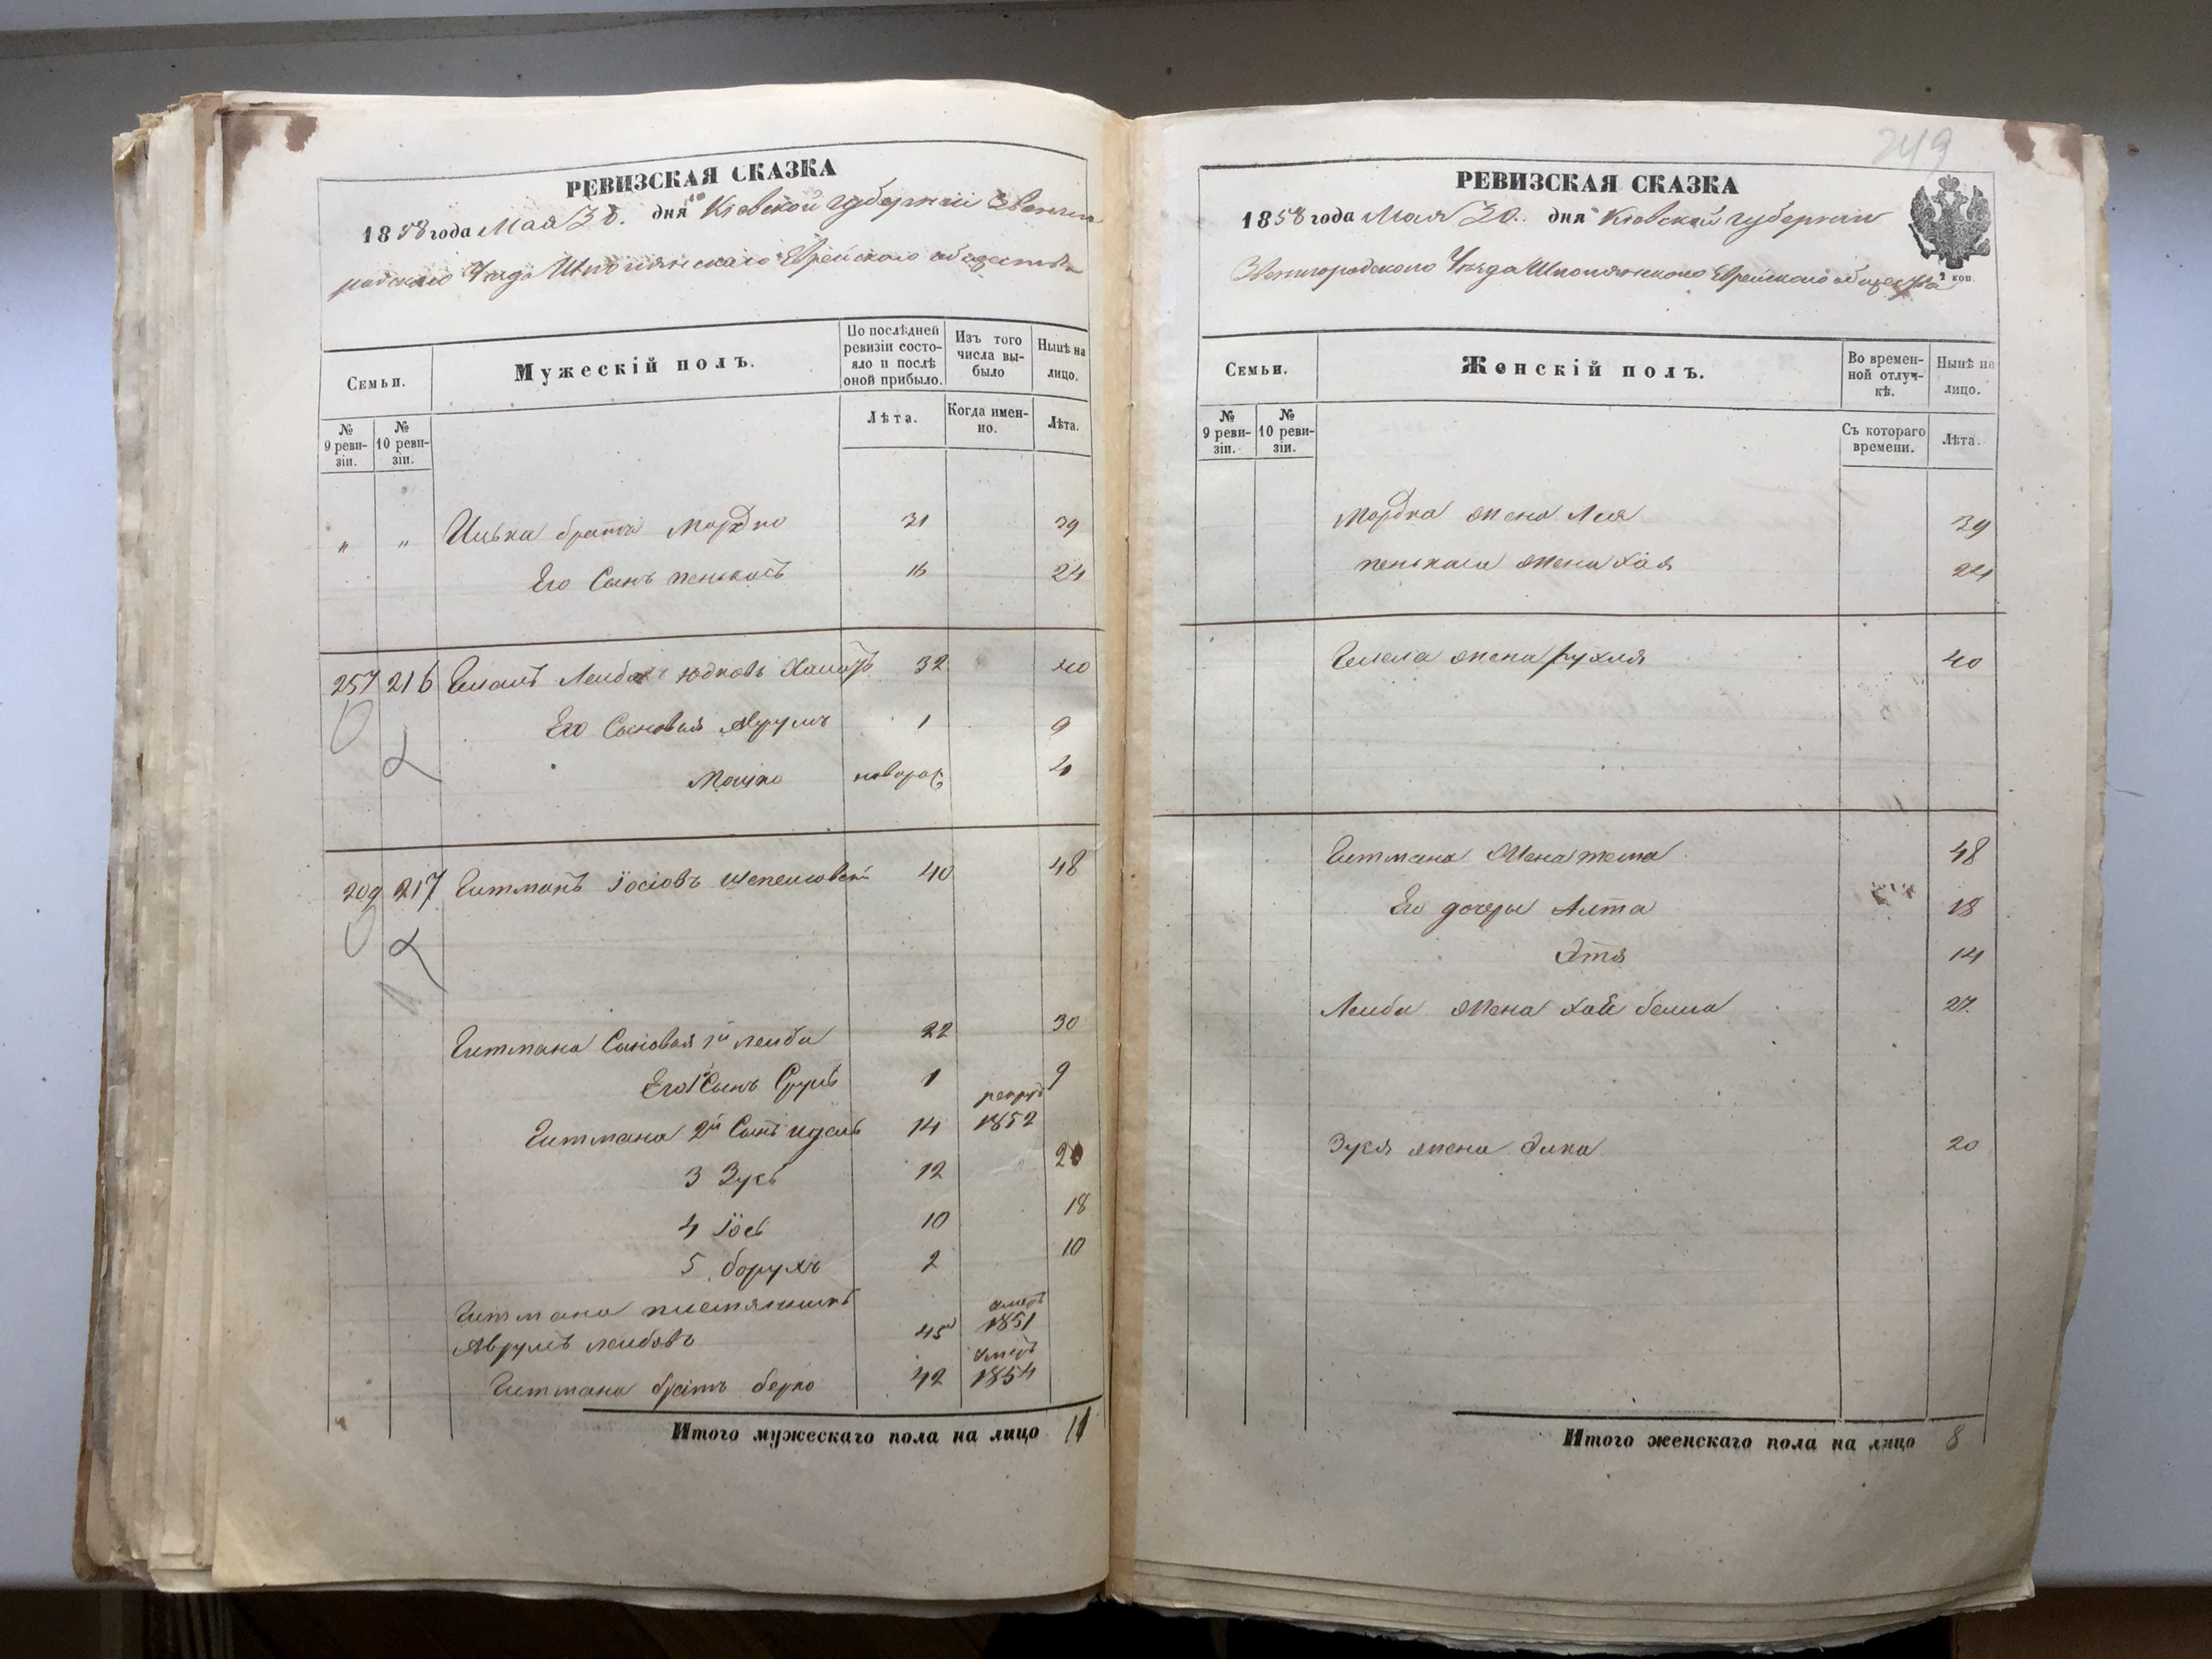 РЕВИЗСКАЯ СКАЗКА
1858 года Мая 30. дня Кіевской губерніи Звениго
родскаго Уезда Шполянскаго Еврейскаго общества
Семьи.
Мужескій полъ.
По послѣдней ревизіи состо-
яло и послѣ
оной прибыло.
Изъ того
числа вы-
было
Нынѣ на
лицо.
№
9 реви-
зіи.
№
10 реви-
зіи.
Лѣта.
Когда имен-
но.
Лѣта.
" " Ицька братъ Мордко 31 39
Его Сынъ пенькасъ 16 24
257 216 Лейба юдковъ 32 40
Его Сыновья Аврумъ 1 9
Мошко новорож 4
209 217 Гитманъ Іосіовъ 40 48
Гитмана Сыновья 1й лейба 22 30
Его Сынъ Срулъ 1 9
Гитмана 2й Сынъ идель 14 рекрут 1852
3 Зусь 12 20
4 Іось 10 18
5 борухъ 2 10
Гитмана племянникъ
Аврумъ лейбовъ 45 умеръ 1851
Гитмана братъ берко 42 умеръ 1854
Итого мужескаго пола на лицо 11
249
РЕВИЗСКАЯ СКАЗКА
1858 года Мая 30. дня Кіевской губерніи
Звенигородскаго Уезда Шполянскаго Еврейскаго общества
2 коп.
Семьи.
Женскій полъ.
Во времен-
ной отлуч-
кѣ.
Нынѣ на
лицо.
№
9 реви-
зіи.
№
10 реви-
зіи.
Съ котораго
времени.
Лѣта.
Мордка жена Лея 39
пенькаса жена Хая 24
жена рухля 40
Гитмана жена 48
Его дочеры Алта 18
Этя 14
Лейбы жена Хая бейла 27.
Зуся жена Элка 20
Итого женскаго пола на лицо 8